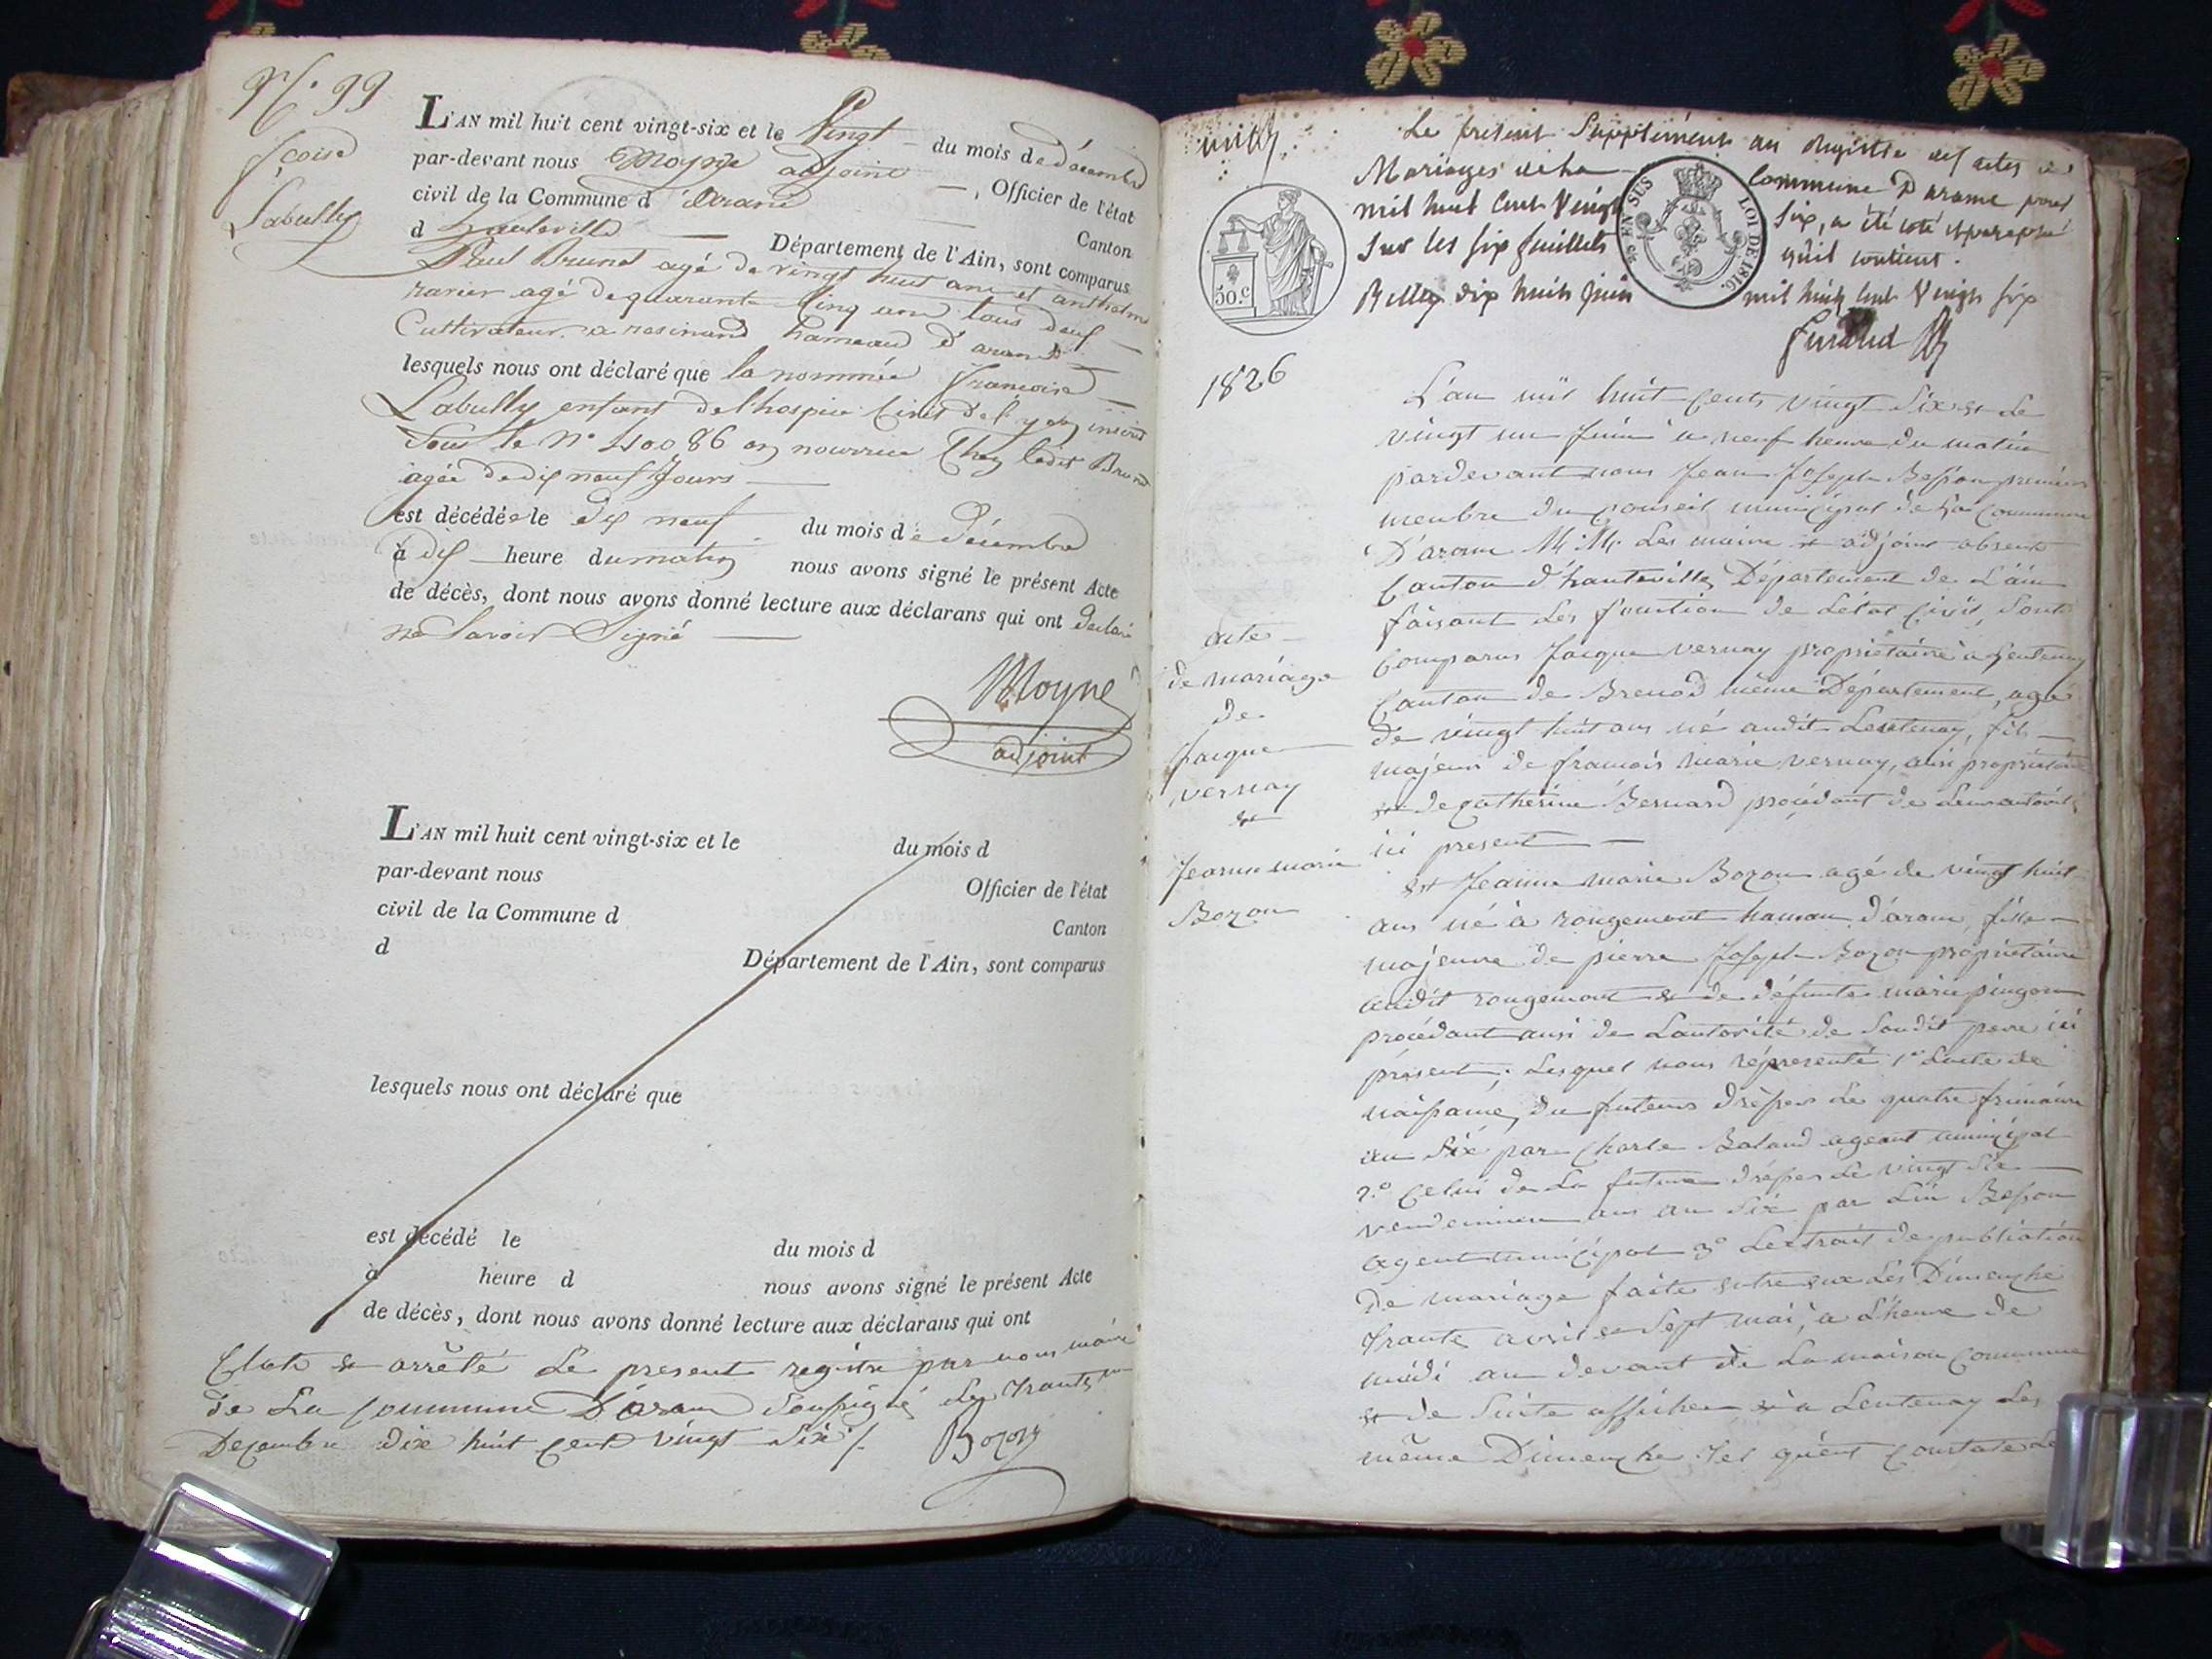 N.° 99
fcoise
Labully
L'AN mil huit cent vingt-six et le Vingt du mois de décembre
par-devant nous Moyne adjoint, Officier de l'état
civil de la Commune d'Arane Canton
d hauteville Département de l'Ain, sont comparus
Paul Brunet agé de vingt huit ans et anthelme
ravier agé de quarante Cinq ans tous deux
Cultivateur a resinand hameau d'arane
lesquels nous ont déclaré que la nommée francoise
Labully enfant de l'hospice Civil de inscrit
Sous le N° 40086 en nourrice Chez ledit Brunet
agée de dix neuf Jours
est décédée le dix neuf du mois de décembre
à dix heure du matin nous avons signé le présent Acte
de décès, dont nous avons donné lecture aux déclarans qui ont déclaré
ne Savoir Signé
Moyne
adjoint
L'AN mil huit cent vingt-six et le du mois d
par-devant nous Officier de l'état
civil de la Commune d Canton
d Département de l'Ain, sont comparus
lesquels nous ont déclaré que
est décédé le du mois d
à heure d nous avons signé le présent Acte
de décès, dont nous avons donné lecture aux déclarans qui ont
Clot & arrêté Le present registre par nous maire
de La Commune D'aran Soussigné Le trante un
Decembre dix huit cent vingt Six /.
Bozon
Le présent Supplément au Registre des actes de
Mariages de la Commune D'arane pour
mil huit Cent Vingt Six, a été coté et paraphé
Sur les six feuillets qu'il contient.
Belley dix huit Juin mil huit Cent Vingt six
50.C
EN SUS
LOI DE 1816.
1826
acte
de mariage
de
Jacque
vernay
&
Jeanne marie
Bozon
L'an mil huit Cents vingt Six & Le
vingt un Juin a neuf heure du matin
pardevant nous Jean Joseph Besson premier
menbre du Conseil municipal de La Commune
D'arane M.M. Les maire & adjoint absent
Canton d'hauteville Département de L'ain
faisant Les fonction de Létat Civil, Sont
Comparus Jacque vernay propriétaire a Lentenay
Canton de Brenod même Département, agé
de vingt huit ans né audit Lentenay, fils
majeur de francois marie vernay, aussi propriétaire
& de catherine Bernard procédant de Leur autorité
ici present
& Jeanne marie Bozon agé de vingt huit
ans né à rougemont hamau d'arane, fille
majeure de pierre Joseph Bozon propriétaire
audit rougemont & de défunte marie pingon
procédant aussi de Lautorité de Sondit pere ici
présent; Lesquel nous représenté 1° Lacte de
naissance du futeur dréssé Le quatre frimaire
an Six par Charle Baland agent municipal
2.° Celui de La future dréssé Le vingt Six
vendemiere an Six par Besson
agent municipal 3° Lextrait de publication
De mariage faite entre eux Les Dimenche
trante avril & Sept mai, a L'heure de
midi au devant de La maison Commune
& de Suite affichée & à Lentenay Les
même Dimenche tel qu'ent Constate Le